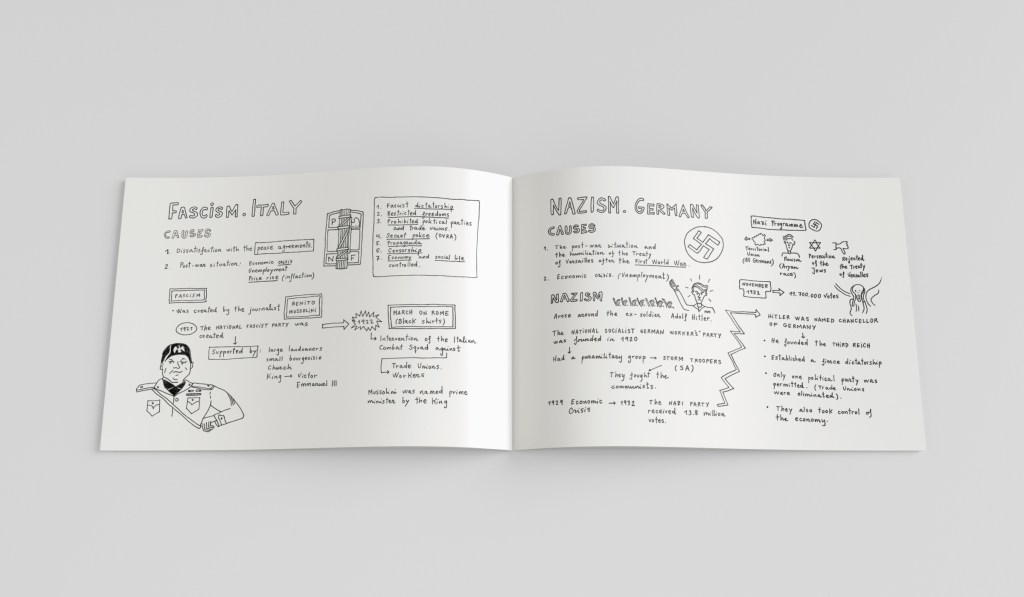 FASCISM. ITALY
CAUSES
1. Dissatisfaction with the peace agreements.
2. Post-war situation: Economic crisis
Unemployment
Price rise (inflaction)
P
N F
1. Fascist dictatorship
2. Restricted freedoms
3. Prohibited political parties
and trade unions.
4. Secret police (OVRA)
5. Propaganda
6. Censorship
7. Economy and social life
controlled.
FASCISM
• Was created by the journalist BENITO
MUSSOLINI
1921 THE NATIONAL FASCIST PARTY WAS
created
Supported by: large landowners
small bourgeoisie
Church
King → Victor
Emmanuel III
1922
MARCH ON ROME
(Black shirts)
Intervention of the Italian
Combat Squad against
Trade Unions.
Workers
Mussolini was named prime
minister by the King
NAZISM. GERMANY
CAUSES
1. The post-war situation and
the humiliation of the Treaty
of Versailles after the First World War.
2. Economic crisis. (Unemployment)
NAZISM
Arose around the ex-soldier Adolf Hitler.
THE NATIONAL SOCIALIST GERMAN WORKER'S PARTY
was founded in 1920
Had a paramilitary group → STORM TROOPERS
(SA)
They fought the
communists.
1929 Economic → 1932 THE NAZI PARTY
Crisis received 13.8 million
votes.
Nazi Programme
Territorial
Union
(All Germans)
Racism
(Aryan
race)
Persecution
of the
Jews
Rejected
the Treaty
of Versailles
NOVEMBER
1932 → 11.700.000 Votes
HITLER WAS NAMED CHANCELLOR
OF GERMANY
• He founded the THIRD REICH
• Established a fierce dictatorship
• Only one political party was
permitted. (Trade Unions
were eliminated).
• They also took control of
the economy.